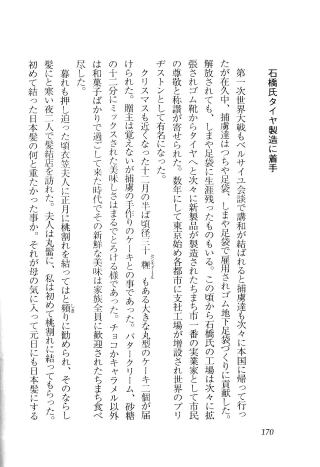 石橋氏タイヤ製造に着手
第一次世界大戦もベルサイユ会談で講和が結ばれると捕虜達も次々に本国に帰って行っ
たが在久中、捕虜達はつちや足袋、しまや足袋で雇用されゴム地下足袋づくりに貢献した。
解放されても、しまや足袋に生涯残ったものもいる。この頃から石橋氏の工場は次々に拡
張されゴム靴からタイヤへと次々に新製品が製造されたちまち市一番の実業家として市民
の尊敬と称讃が寄せられた。数年にして東京始め各都市に支社工場が増設され世界のブリ
ヂストンとして有名になる。
クリスマスも近くなった十二月の半ば頃径三十糎もある大きな丸型のケーキ二個が届
けられた。贈主は覚えないが捕虜の手作りのケーキとの事であった。バタークリーム、砂糖
の十二分にミックスされた美味しさはまるでとろける様であった。チョコかキャラメル以外
は和菓子ばかりで過ごして来た時代でその新鮮な美味は家族全員に歓迎されたちまち食べ
尽した。
暮れも押し迫った頃衣笠夫人に正月に桃割れを結ってはと頻りに勧められ、そのならし
髪にと寒い夜二人で髪結店を訪れた。夫人は丸髷に、私は初めて桃割れに結ってもらった。
初めて結った日本髪の何と重たかった事か。それが母の気に入って元日にも日本髪にする
170